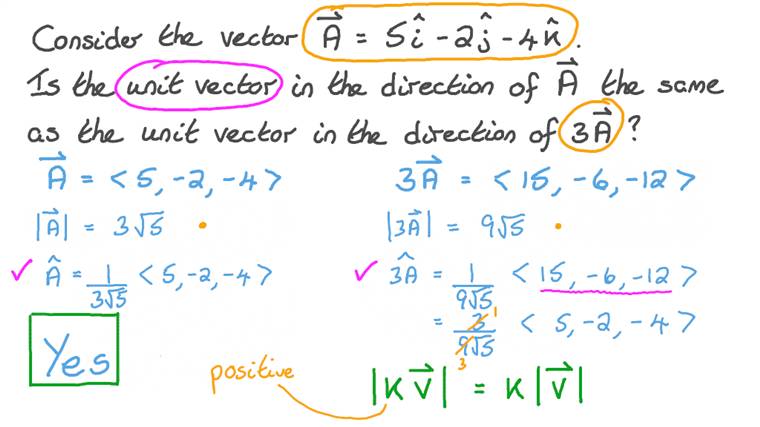 Consider the vector A⃗ = 5î - 2ĵ - 4k̂.
Is the unit vector in the direction of A⃗ the same
as the unit vector in the direction of 3A⃗ ?
A⃗ = < 5, -2, -4 >
3A⃗ = < 15, -6, -12 >
|A⃗| = 3√5
|3A⃗| = 9√5
✓ Â = 1/(3√5) < 5, -2, -4 >
✓ 3Â = 1/(9√5) < 15, -6, -12 >
= 3/(9√5) < 5, -2, -4 >
1
3
Yes
positive
|K V⃗| = K |V⃗|